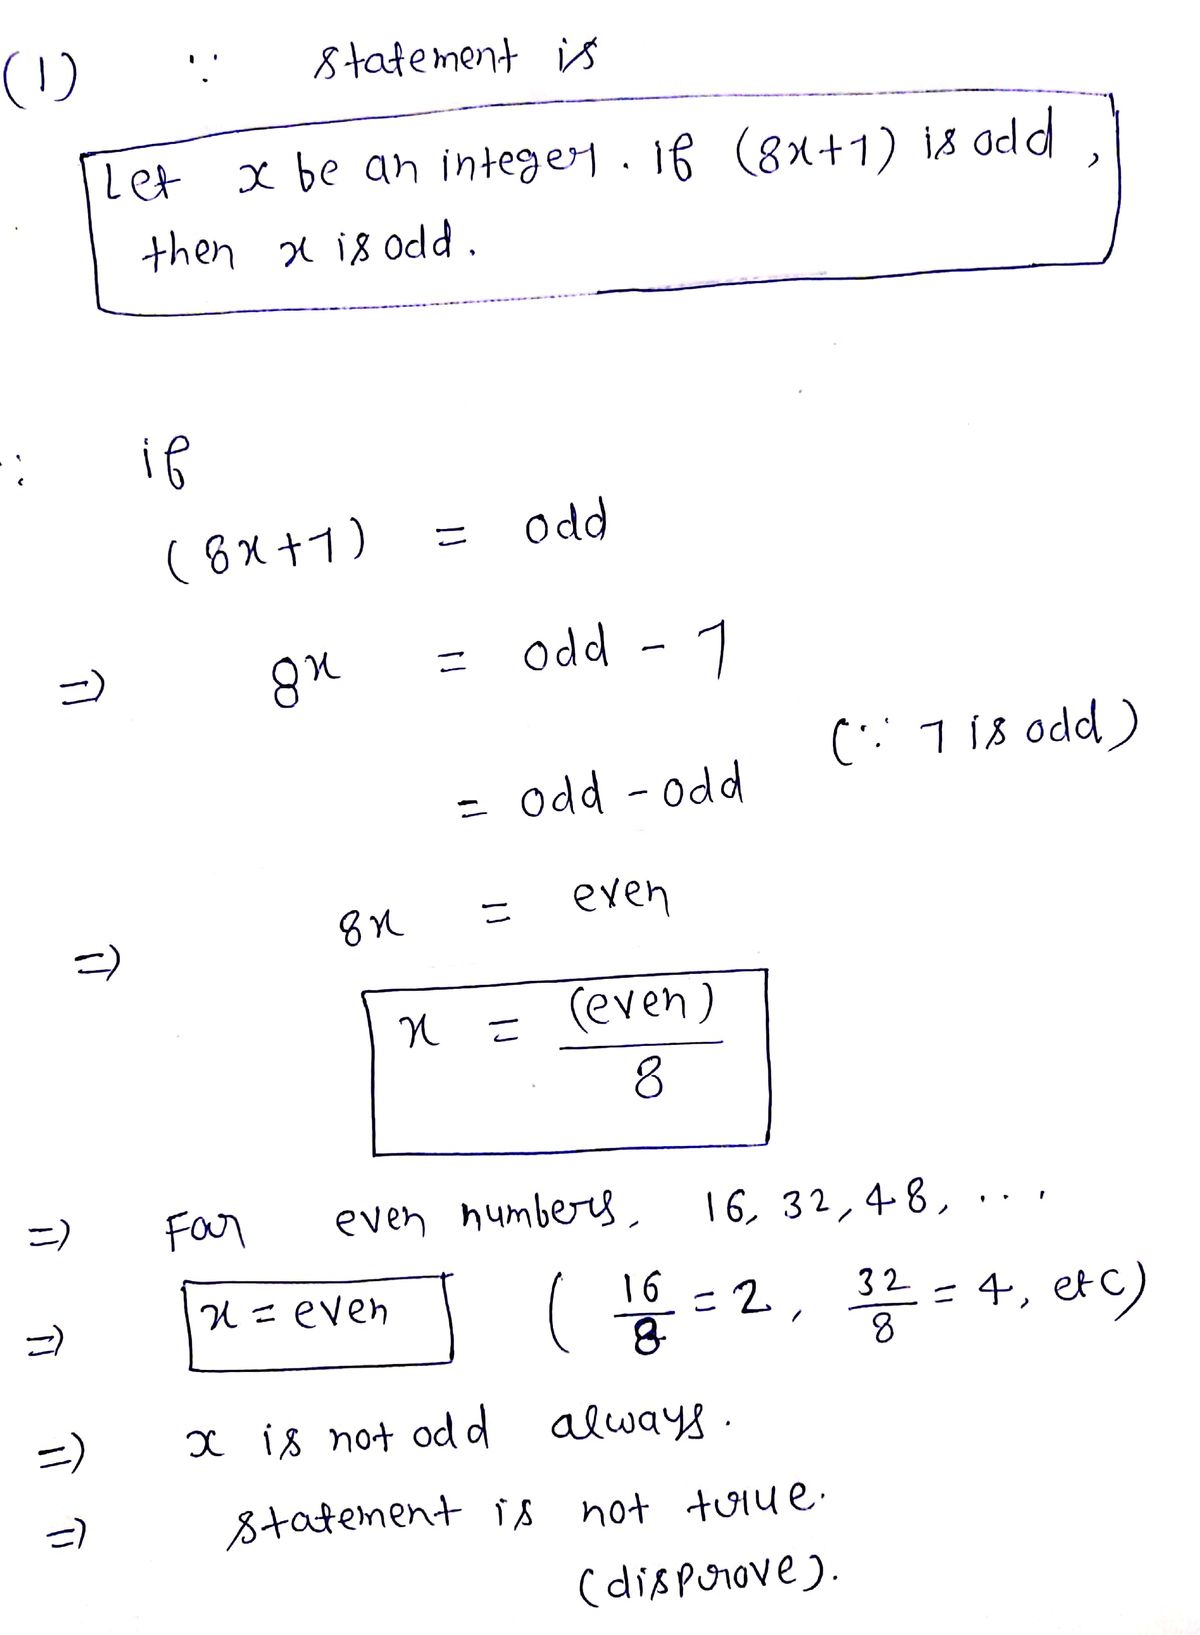 (1) ∵ statement is
Let x be an integer. if (8x+1) is odd,
then x is odd.
∵ if
(8x+1) = odd
⇒ 8x = odd - 1
(∵ 1 is odd)
= odd - odd
⇒ 8x = even
x = (even)/8
⇒ For even numbers, 16, 32, 48, ...
⇒ x = even ( 16/8 = 2, 32/8 = 4, etc)
⇒ x is not odd always.
⇒ statement is not true.
(disprove).